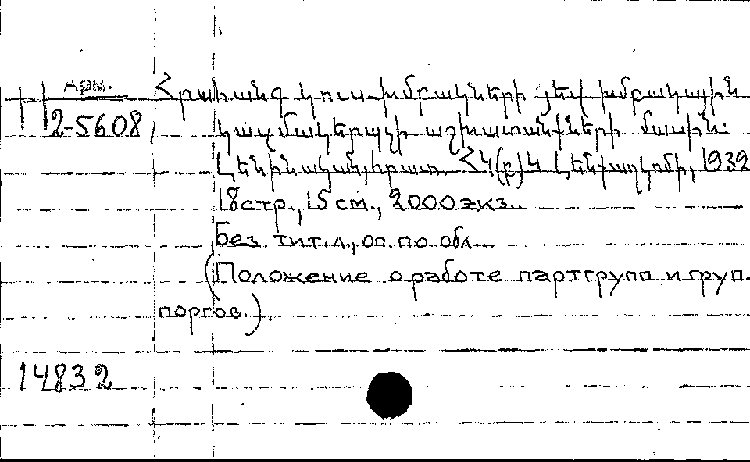 Арм.
2-5608
Հրահանգ կուս. խմբակների յեվ խմբակային
կազմակերպչի աշխատանքների մասին.
Լենինական, հրատ. ՀԿ(բ)Կ Լենքաղկոմի, 1932
18 стр., 15 см., 2000 экз.
Без тит. л., оп. по обл.
(Положение о работе партгрупп и груп-
поргов.)
14832